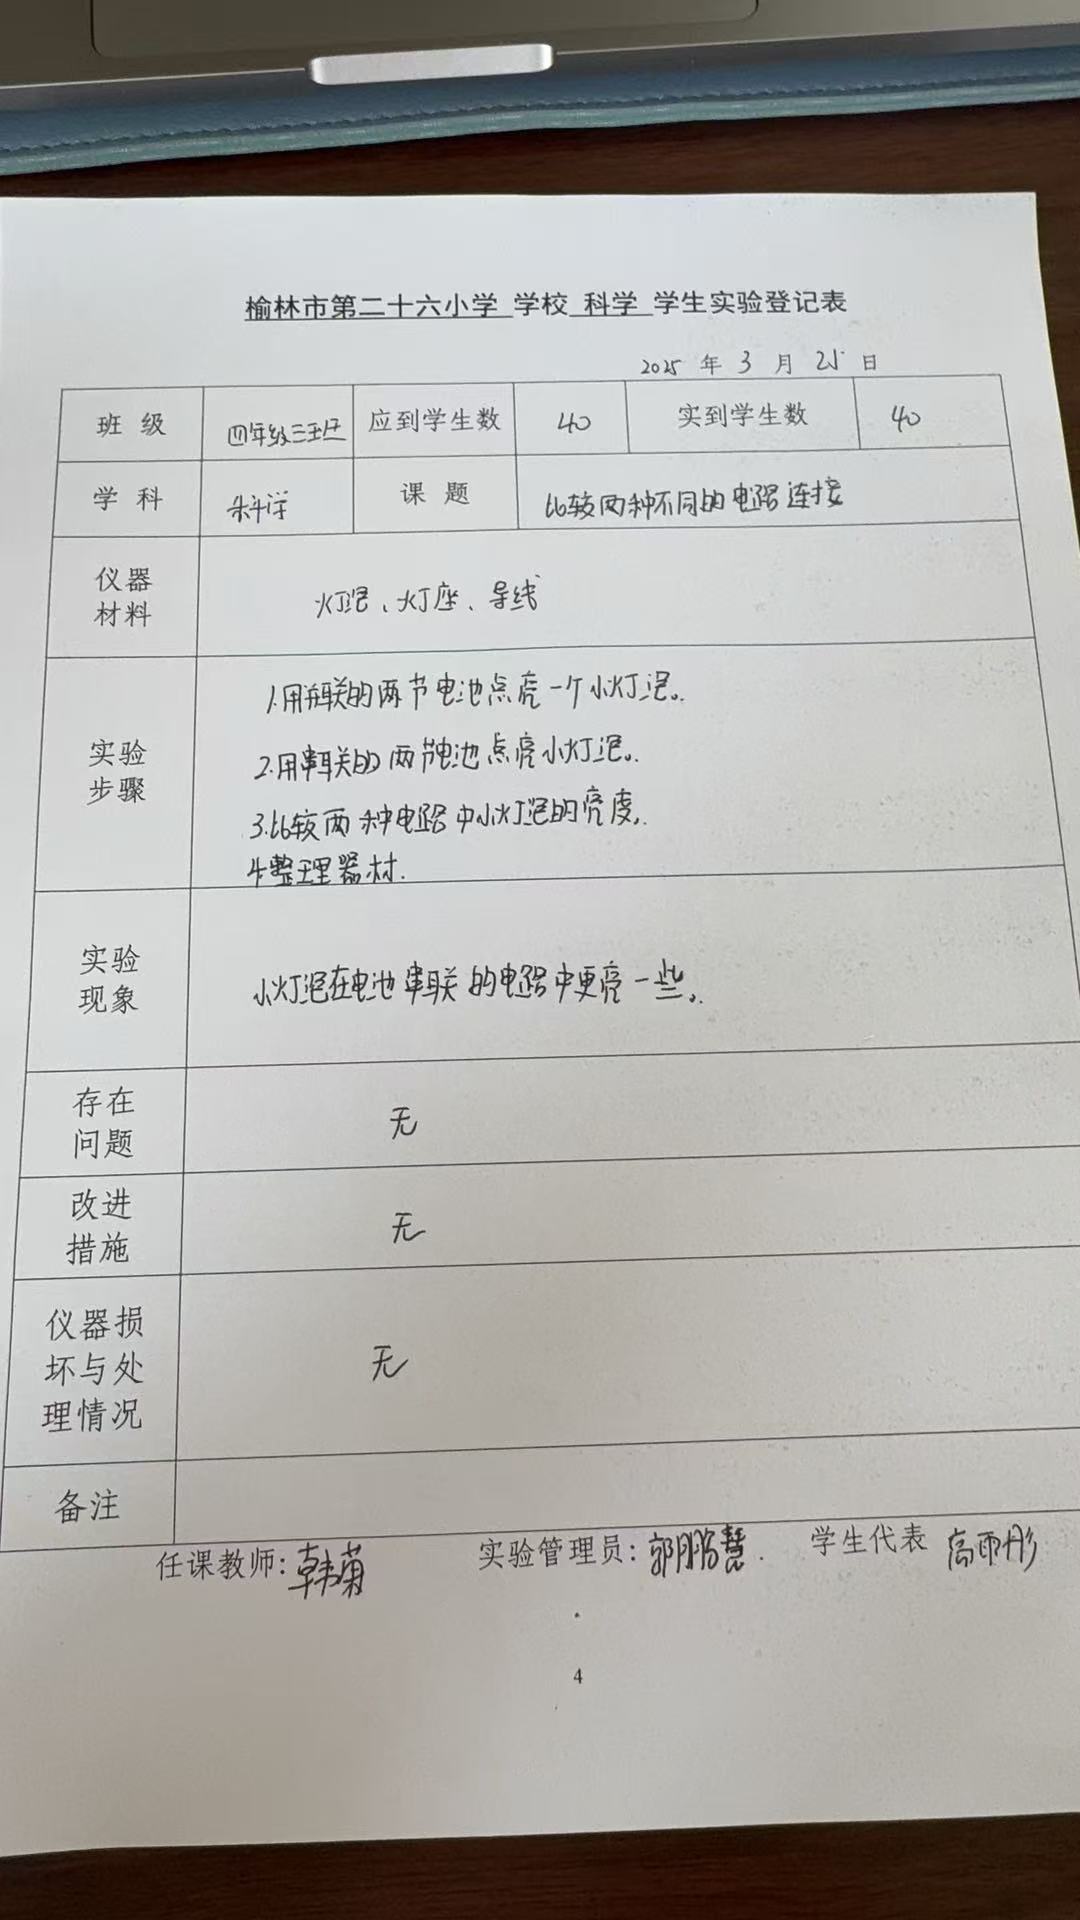 榆林市第二十六小学 学校 科学 学生实验登记表
2025 年 3 月 25 日
班 级 四年级三班 应到学生数 40 实到学生数 40
学 科 科学 课 题 比较两种不同的电路连接
仪器
材料
灯泡、灯座、导线
实验
步骤
1.用并联的两节电池点亮一个小灯泡。
2.用串联的两节电池点亮小灯泡。
3.比较两种电路中小灯泡的亮度。
4整理器材.
实验
现象
小灯泡在电池串联的电路中更亮一些。
存在
问题
无
改进
措施
无
仪器损
坏与处
理情况
无
备注
任课教师:韩菊 实验管理员:郭鹏慧. 学生代表 高雨彤
4